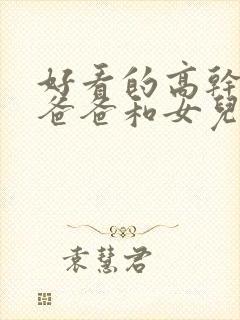 好看的高幹
爸爸和女兒
袁慧君